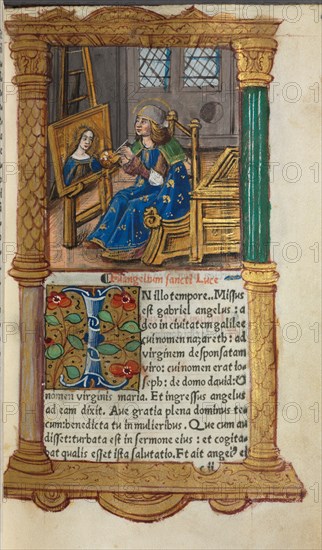 Evangelium sancti Luce
IN illo tempore. Missus
est gabriel angelus: a
deo in civitatem galilee
cui nomen nazareth: ad
virginem desponsatam
viro: cui nomen erat io-
seph: de domo david: &
nomen virginis maria. Et ingressus angelus
ad eam dixit. Ave gratia plena dominus te-
cum: benedicta tu in mulieribus. Que cum au
disset: turbata est in sermone eius: et cogita-
bat qualis esset ista salutatio. Et ait angel9 ei